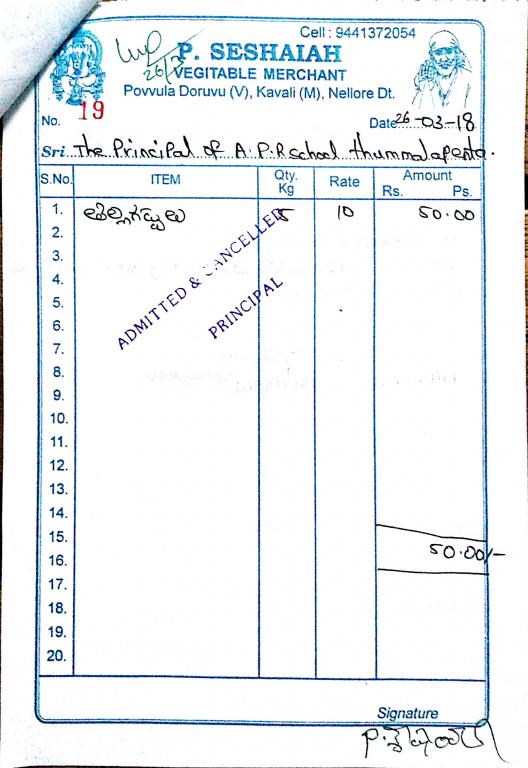 Cell : 9441372054
26/3
P. SESHAIAH
VEGITABLE MERCHANT
Povvula Doruvu (V), Kavali (M), Nellore Dt.
No. 19
Date 26-03-18
Sri. The Principal of A.P.R school thummalapenta.
S.No. ITEM Qty. Kg Rate Amount Rs. Ps.
1. 5 10 50.00
2.
3.
4.
5.
6.
7.
8.
9.
10.
11.
12.
13.
14.
15.
16. 50.00/-
17.
18.
19.
20.
ADMITTED & CANCELLED
PRINCIPAL
Signature